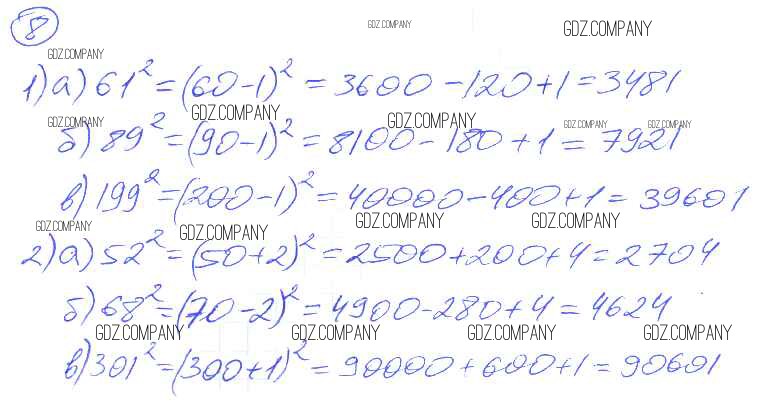 8
GDZ.COMPANY GDZ.COMPANY
GDZ.COMPANY
1) а) 61² = (60-1)² = 3600 - 120 + 1 = 3481
GDZ.COMPANY GDZ.COMPANY GDZ.COMPANY GDZ.COMPANY GDZ.COMPANY
б) 89² = (90-1)² = 8100 - 180 + 1 = 7921
в) 199² = (200-1)² = 40000 - 400 + 1 = 39601
GDZ.COMPANY GDZ.COMPANY GDZ.COMPANY GDZ.COMPANY
2) а) 52² = (50+2)² = 2500 + 200 + 4 = 2704
б) 68² = (70-2)² = 4900 - 280 + 4 = 4624
GDZ.COMPANY GDZ.COMPANY GDZ.COMPANY GDZ.COMPANY
в) 301² = (300+1)² = 90000 + 600 + 1 = 90601